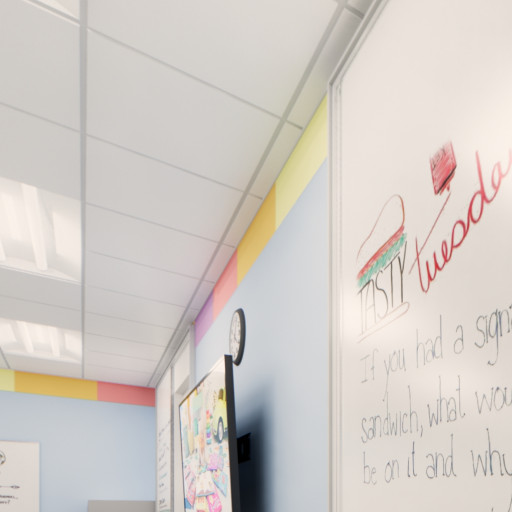 TASTY tuesday
If you had a
sandwich, what
be on it and why